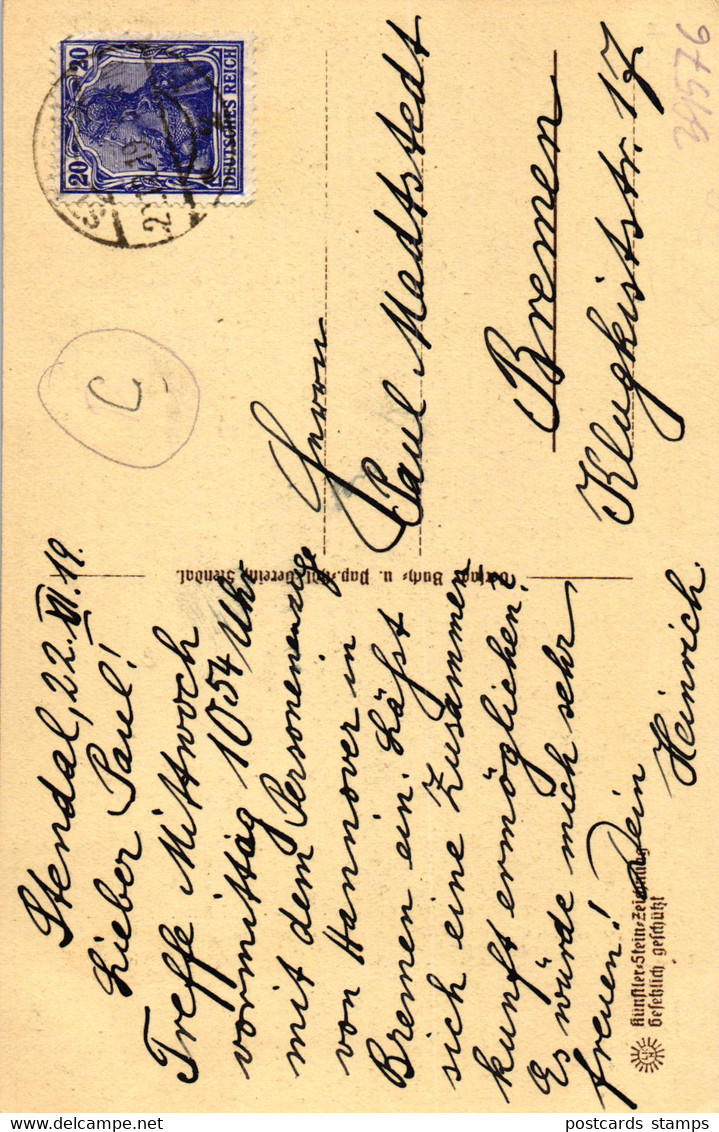 Stendal, 22. XI. 19.
Lieber Paul!
Treffe Mittwoch
vormittag 10 54 Uhr
mit dem Personenzuge
von Hannover in
Bremen ein. Läßt
sich eine Zusammen
kunft ermöglichen?
Es würde mich sehr
freuen! Dein
Heinrich
Herrn
Paul Madtstedt
Bremen
Klugkiststr. 17
20 20
DEUTSCHES REICH
C
Buch- u. Pap. Verein, Stendal.
Künstler-Stein-Zeichnung
Gesetzlich geschützt
postcards stamps